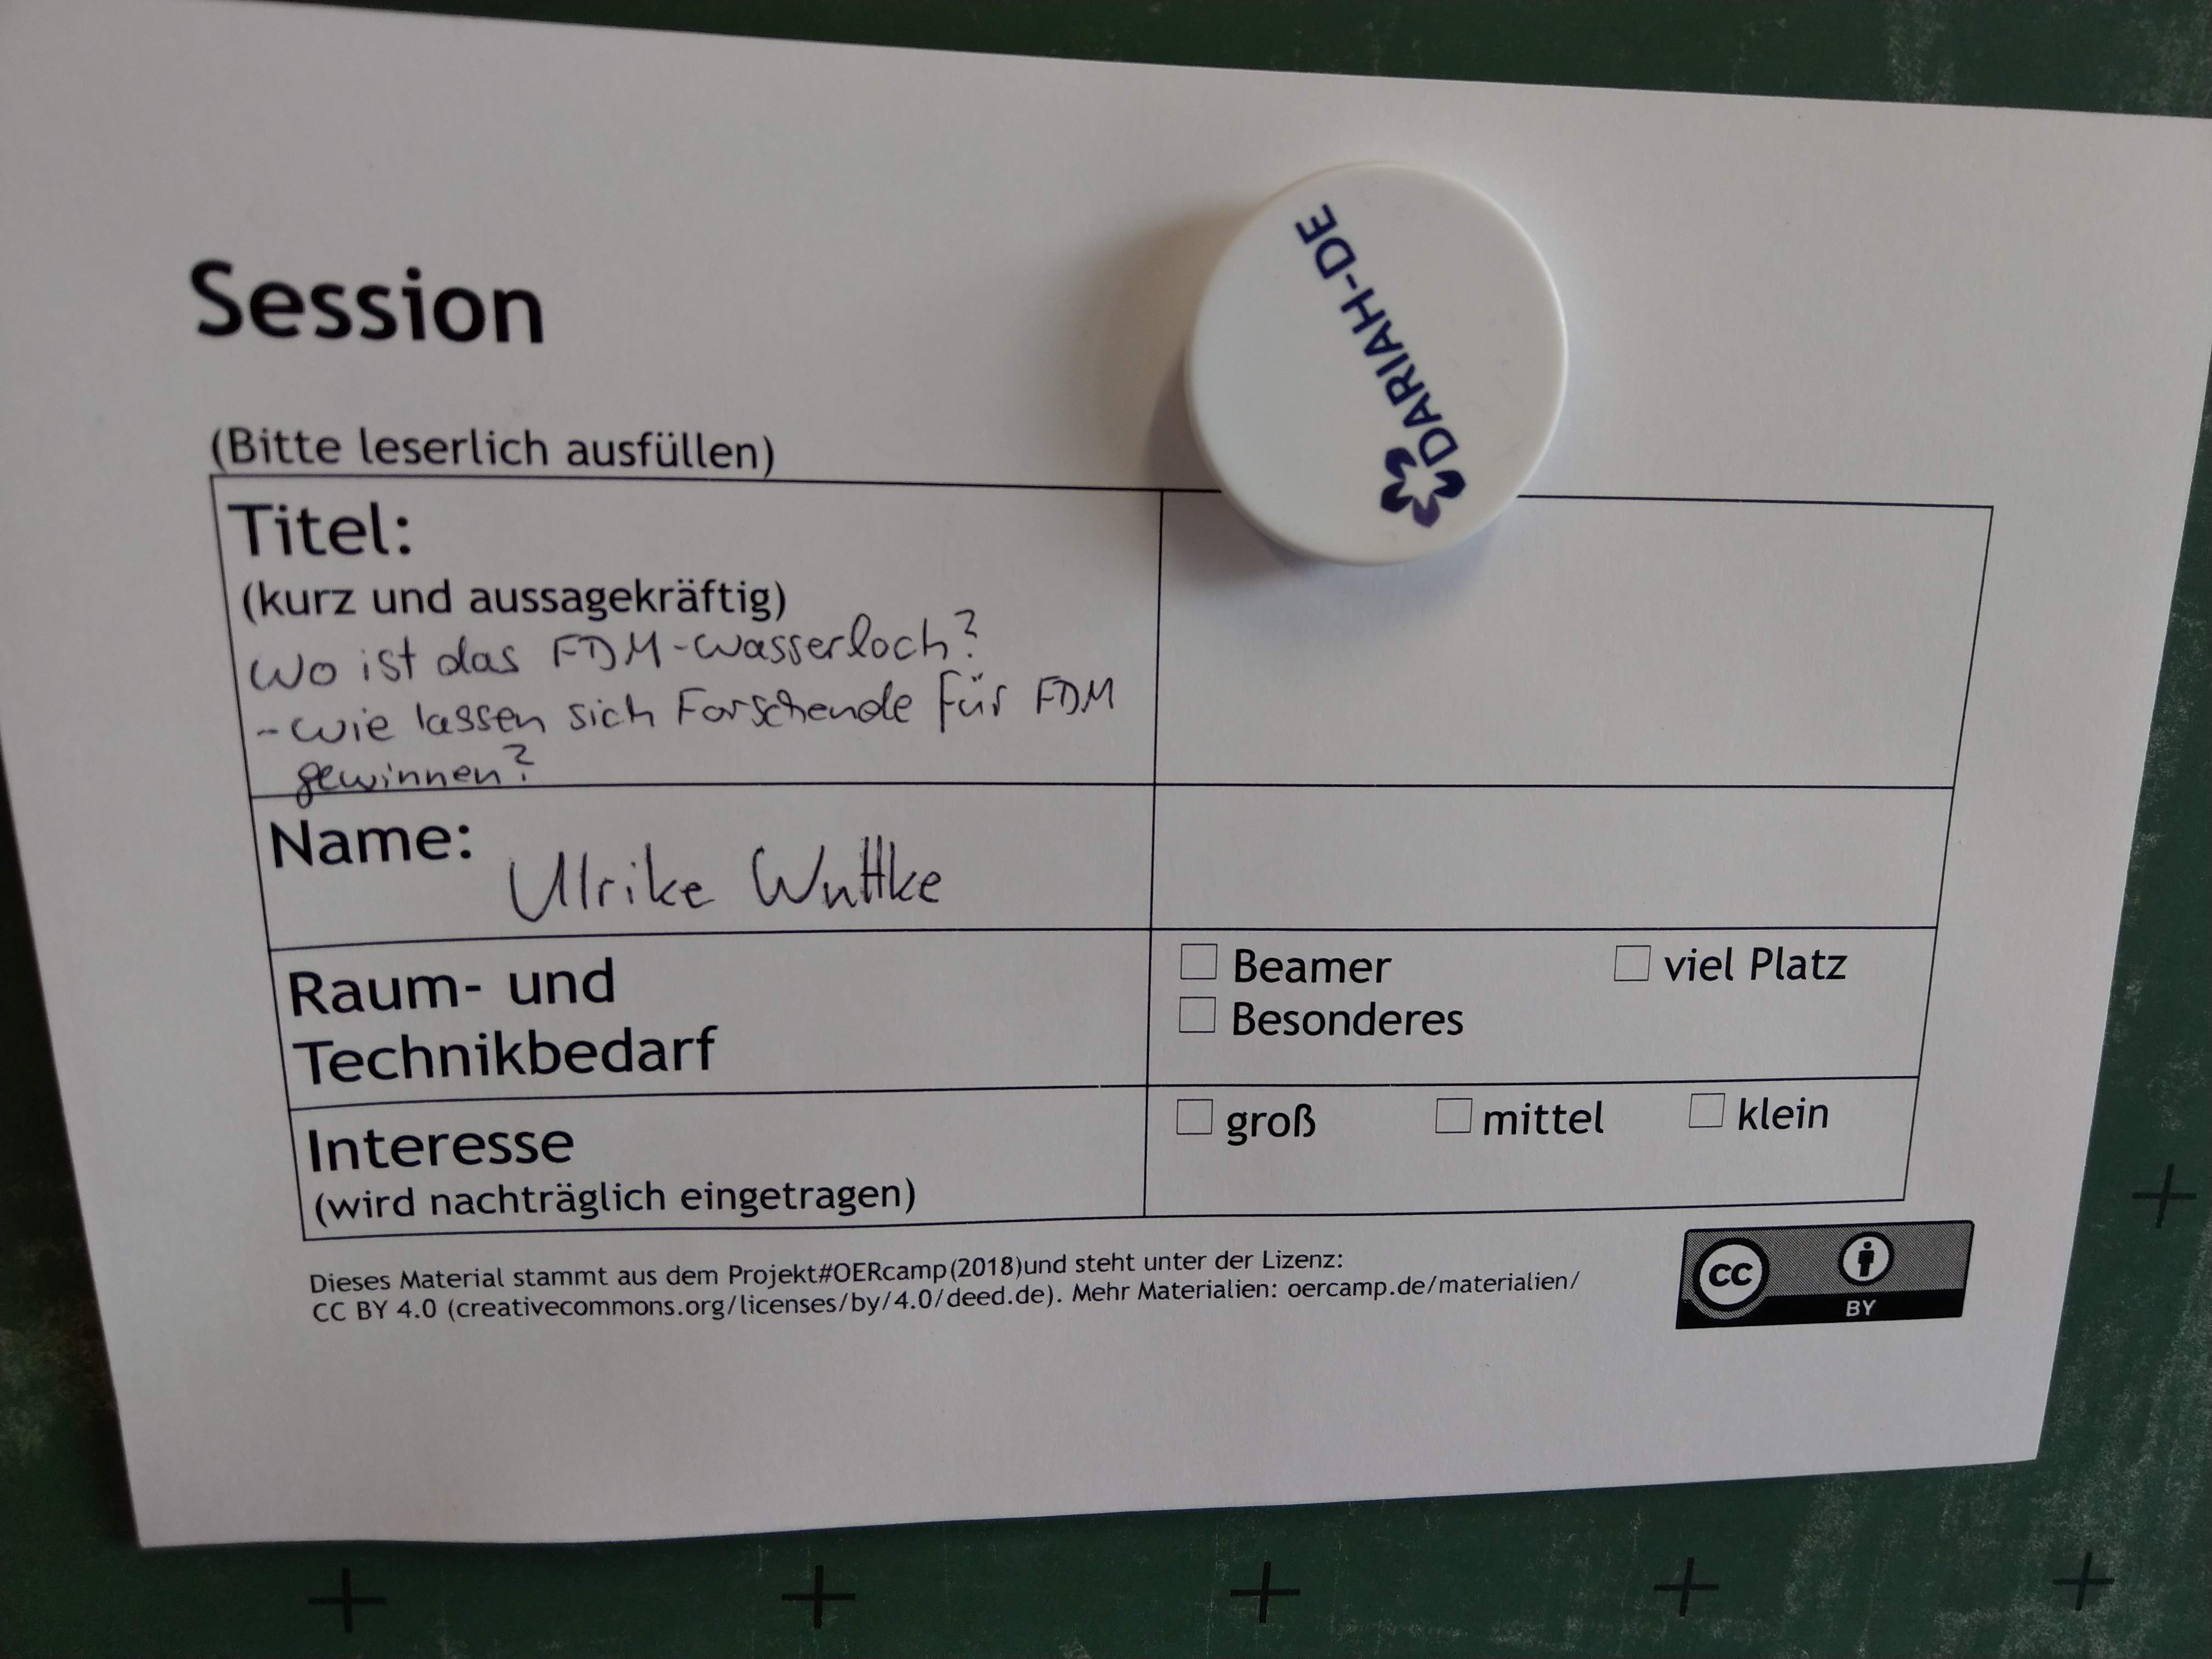 DARIAH-DE
Session
(Bitte leserlich ausfüllen)
Titel:
(kurz und aussagekräftig)
Wo ist das FDM-Wasserloch?
- Wie lassen sich Forschende für FDM
gewinnen?
Name: Ulrike Wuttke
Raum- und
Technikbedarf
☐ Beamer ☐ viel Platz
☐ Besonderes
Interesse
(wird nachträglich eingetragen)
☐ groß ☐ mittel ☐ klein
Dieses Material stammt aus dem Projekt#OERcamp(2018)und steht unter der Lizenz:
CC BY 4.0 (creativecommons.org/licenses/by/4.0/deed.de). Mehr Materialien: oercamp.de/materialien/
CC
BY